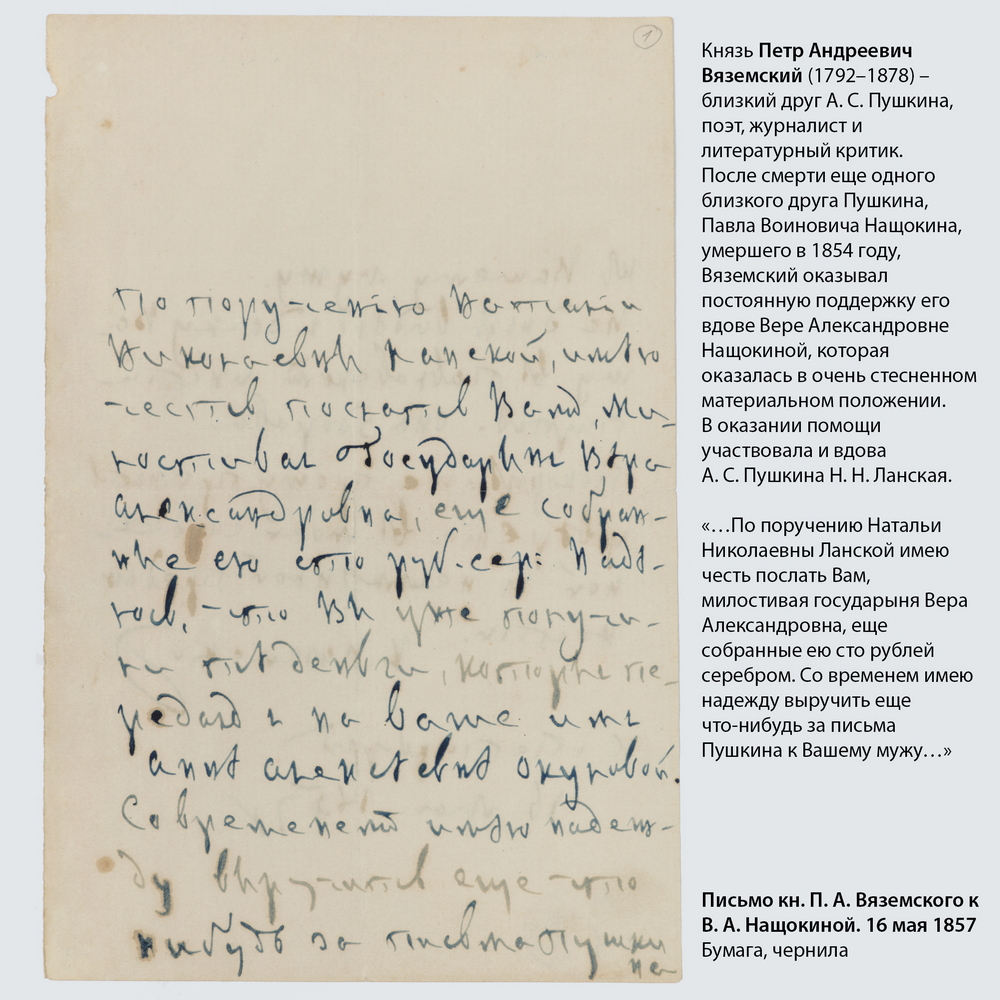 1
По порученію Наталіи
Николаевны Ланской, имѣю
честь послать Вамъ, ми-
лостивая Государыня Вѣра
Александровна, еще собран-
ные ею сто руб. сер: Надѣ-
юсь, что Вы уже получи-
ли тѣ деньги, которые пе-
редалъ я на ваше имя
Аннѣ Алексѣевнѣ Окуловой.
Со временемъ имѣю надеж-
ду выручить еще что
нибудь за письма Пушки
на
Князь Петр Андреевич
Вяземский (1792–1878) –
близкий друг А. С. Пушкина,
поэт, журналист и
литературный критик.
После смерти еще одного
близкого друга Пушкина,
Павла Воиновича Нащокина,
умершего в 1854 году,
Вяземский оказывал
постоянную поддержку его
вдове Вере Александровне
Нащокиной, которая
оказалась в очень стесненном
материальном положении.
В оказании помощи
участвовала и вдова
А. С. Пушкина Н. Н. Ланская.
«…По поручению Натальи
Николаевны Ланской имею
честь послать Вам,
милостивая государыня Вера
Александровна, еще
собранные ею сто рублей
серебром. Со временем имею
надежду выручить еще
что-нибудь за письма
Пушкина к Вашему мужу…»
Письмо кн. П. А. Вяземского к
В. А. Нащокиной. 16 мая 1857
Бумага, чернила